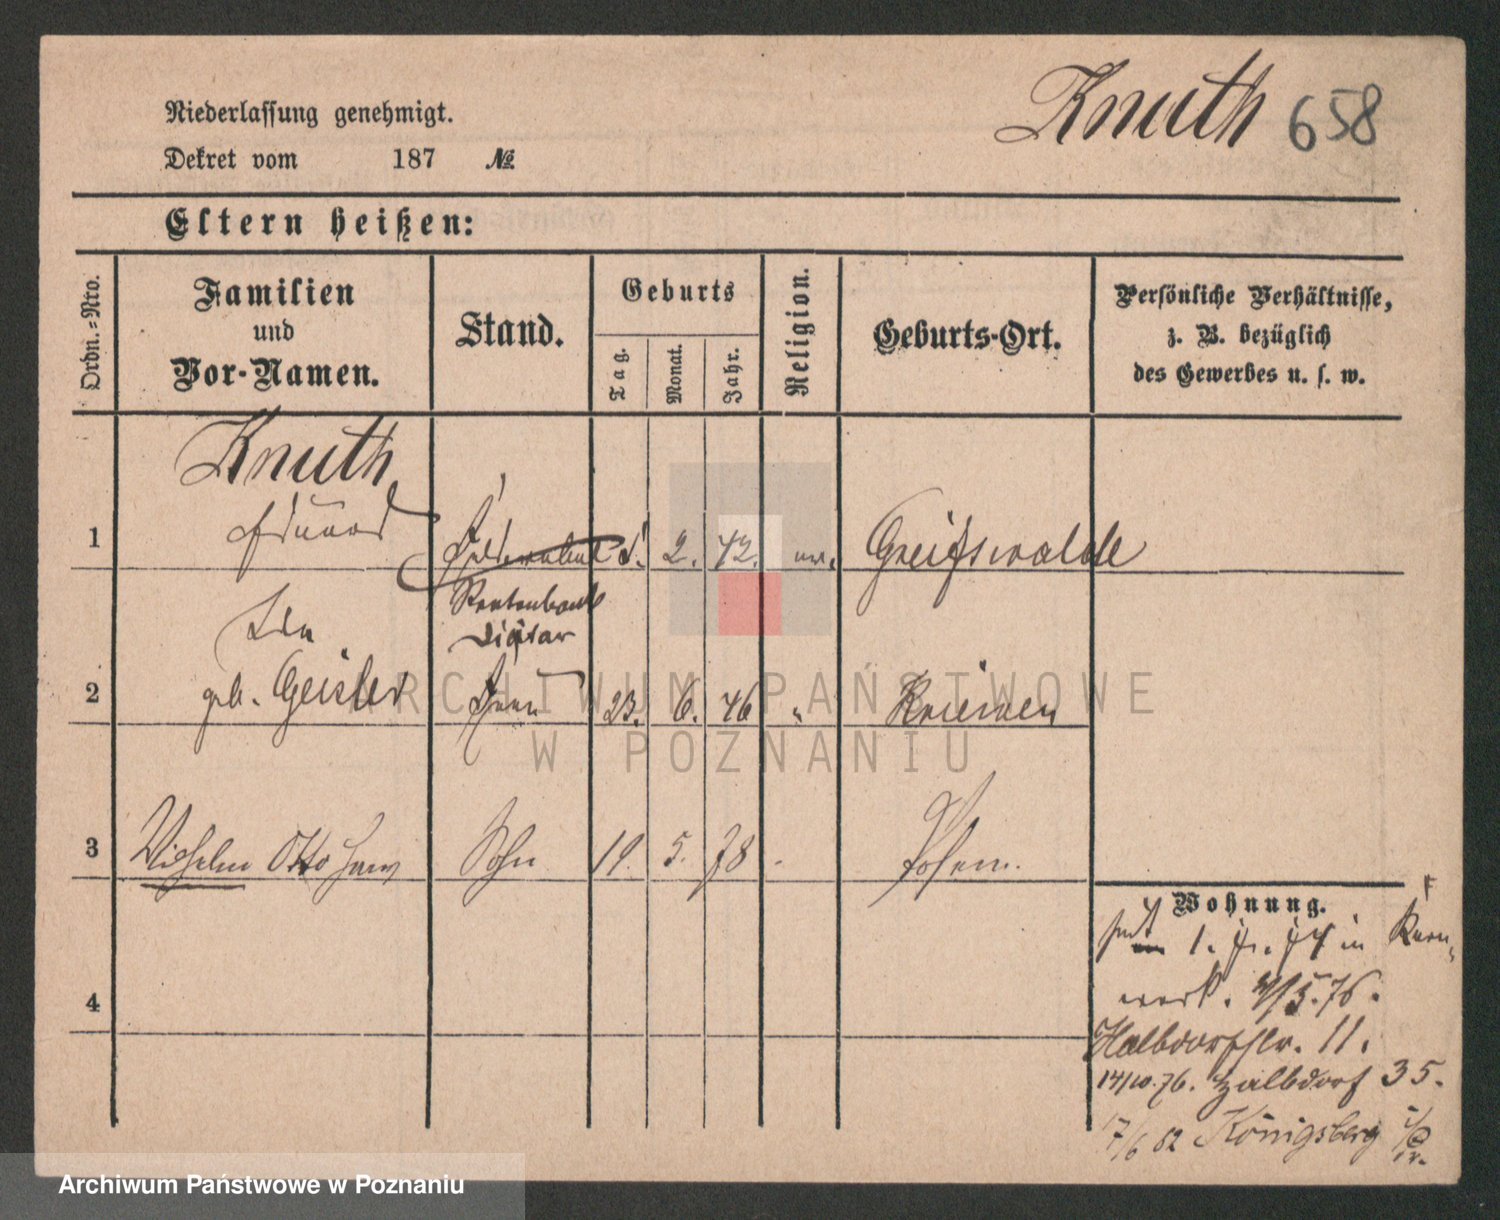 Niederlassung genehmigt.
Knuth 658
Dekret vom 187 №
Eltern heißen:
Ordn.-Nro.
Familien
und
Vor-Namen.
Stand.
Geburts
Tag.
Monat.
Jahr.
Religion.
Geburts-Ort.
Persönliche Verhältnisse,
z. B. bezüglich
des Gewerbes u. s. w.
Knuth
1 Eduard 2. 42. ev. Greifswalde
Rentenbank
Diätar
Ida
2 geb. Geisler Frau 23. 6. 46 " Kriewen
3 Wilhelm Otto Sohn 19. 5. 78 Posen.
4
Wohnung.
1. in Kern-
werk. 5. 76.
Halbdorfstr. 11.
14/10. 76. Halbdorf 35.
17/6 82 Königsberg i/Pr.
ARCHIWUM PAŃSTWOWE
W POZNANIU
Archiwum Państwowe w Poznaniu